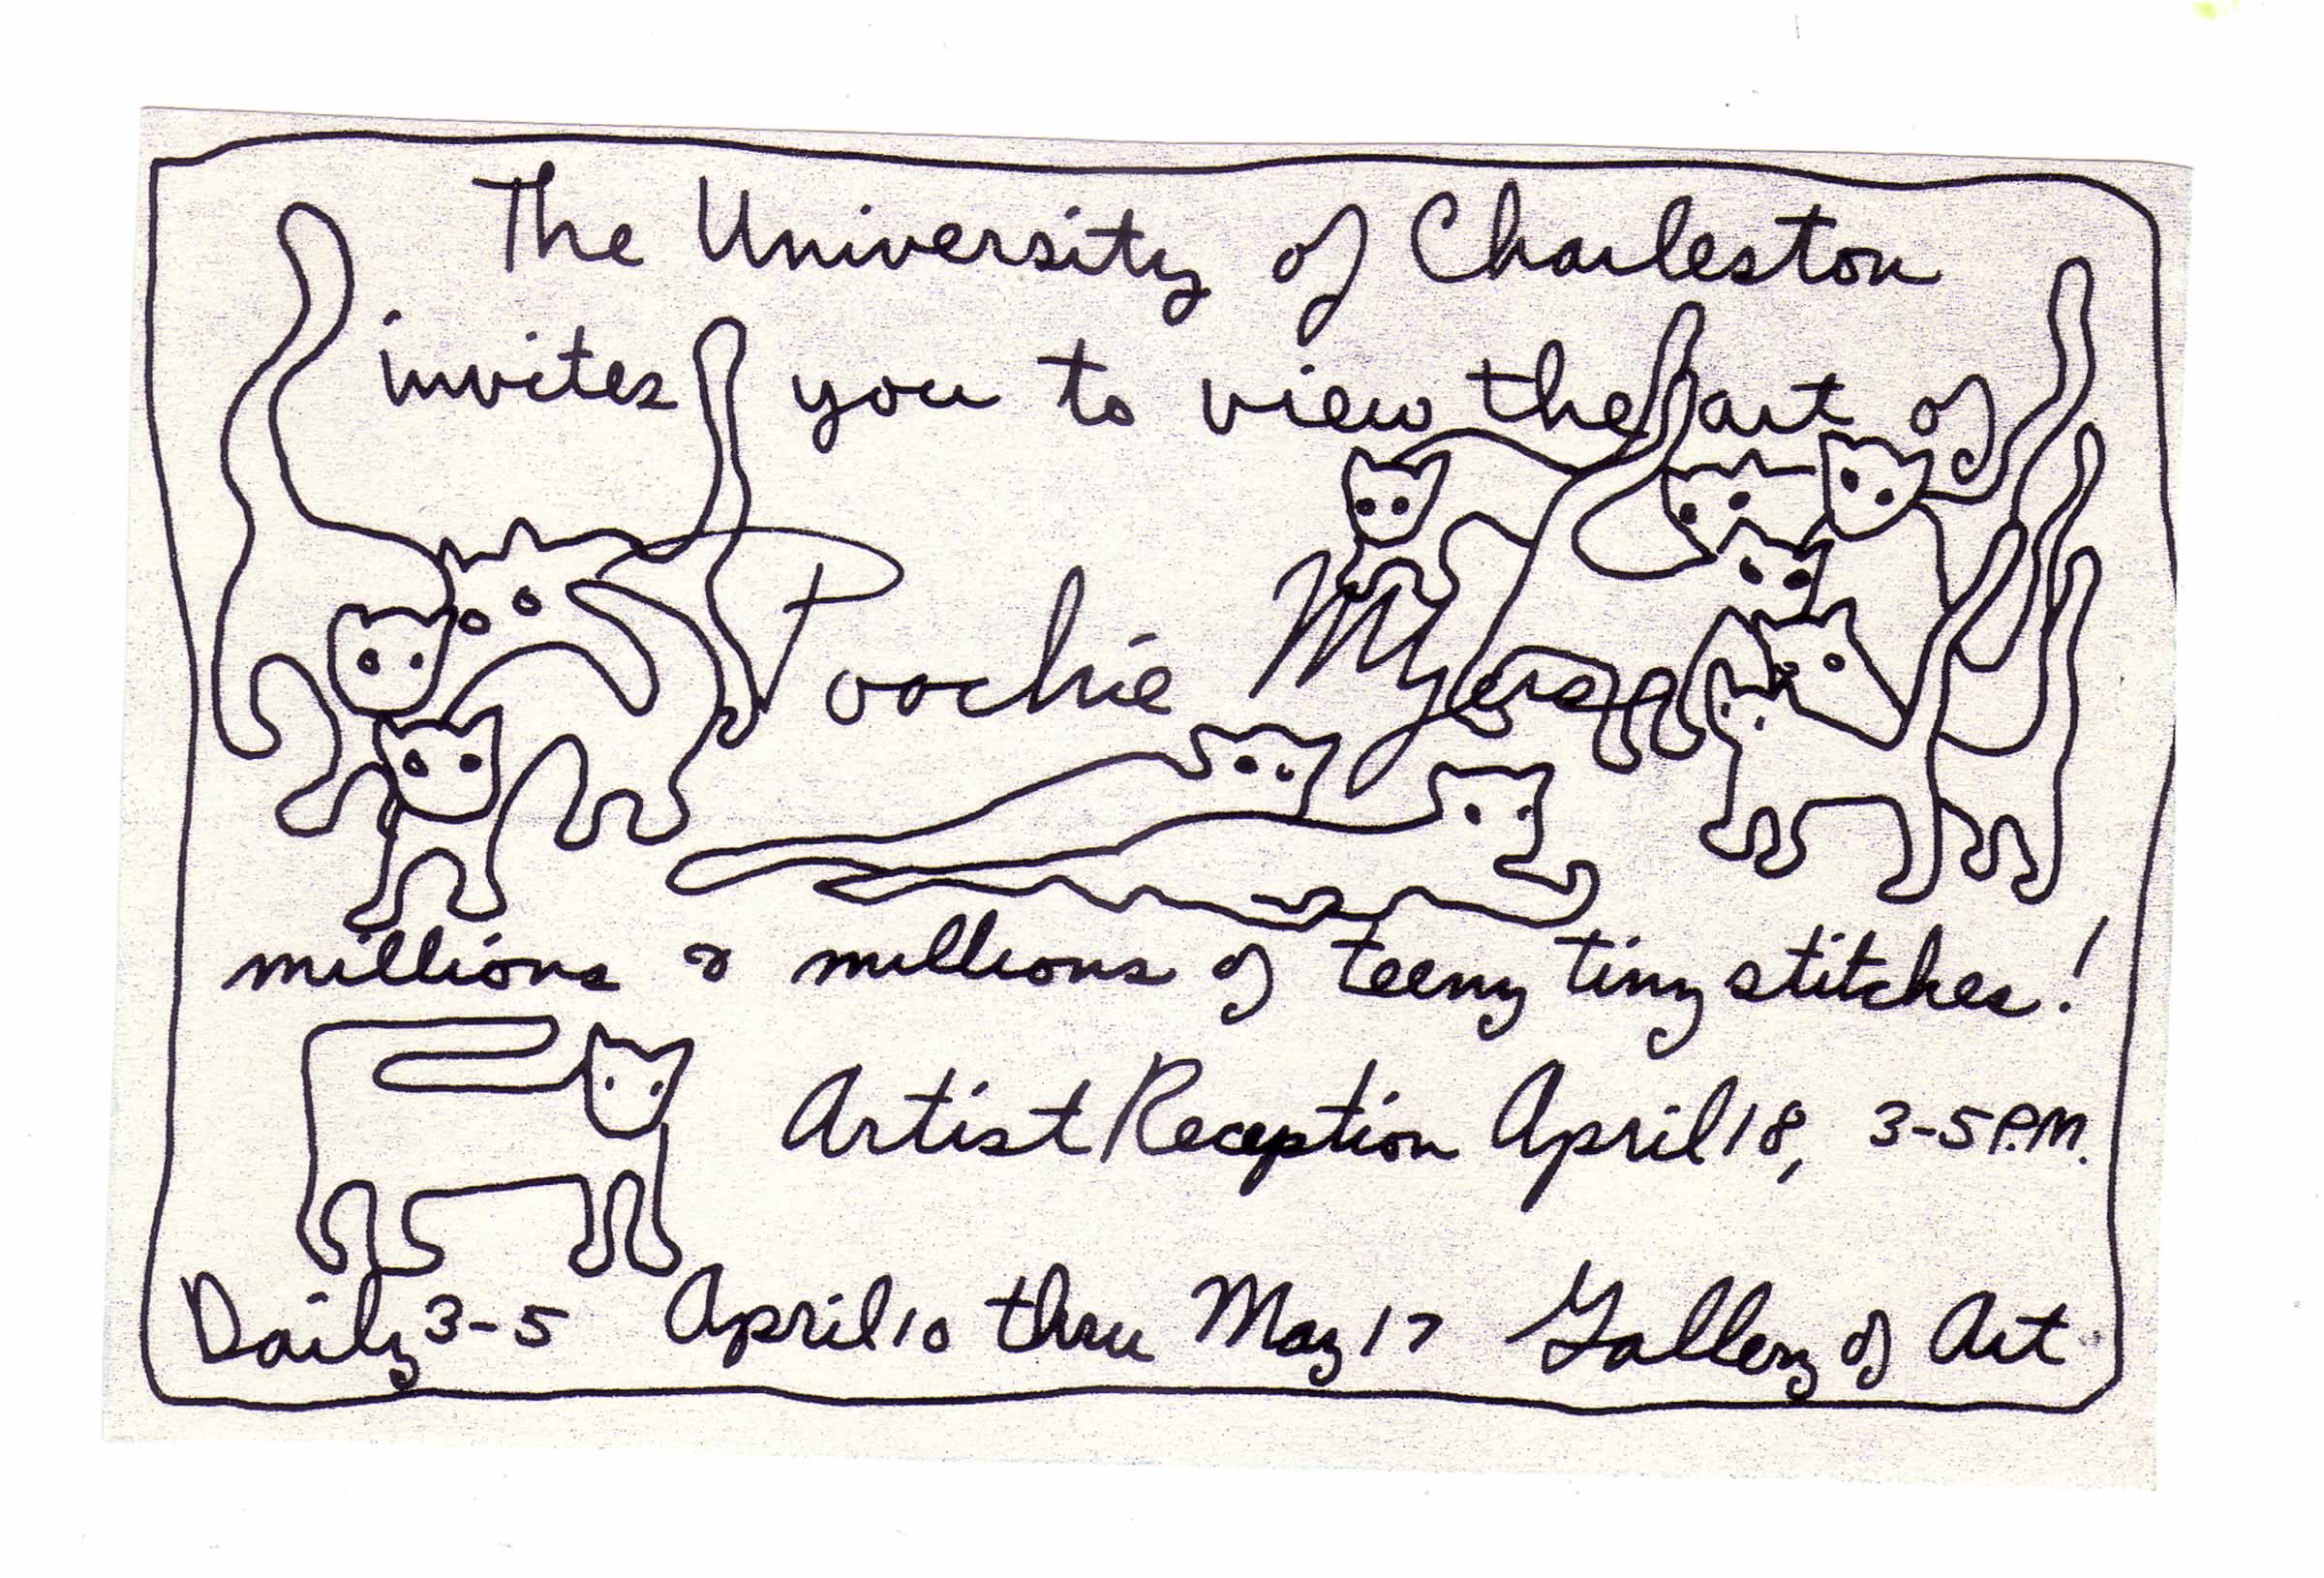 The University of Charleston
invites you to view the art of
Poochie Myers
millions & millions of teeny tiny stitches!
Artist Reception April 18, 3-5 P.M.
Daily 3-5 April 10 thru May 17 Gallery of Art